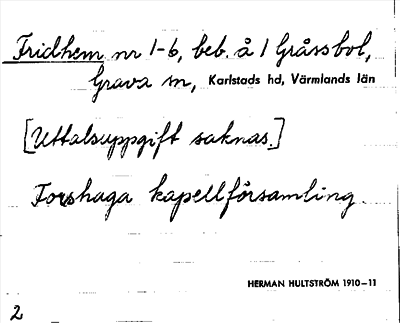 Fridhem nr 1-6, beb. å 1 Gråssbol,
Grava sn, Karlstads hd, Värmlands län
[Uttalsuppgift saknas.]
Forshaga kapellförsamling.
HERMAN HULTSTRÖM 1910-11
2